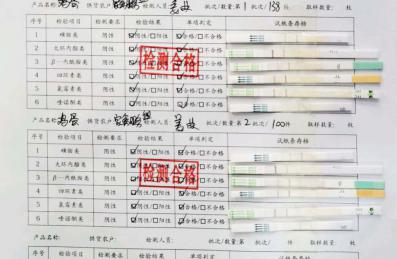 产品名称: 鸡蛋 供货农户: 检测人员: 批次/数量第 1 批次/138 件 取样数量: 枚
序号 检验项目 检验要求 检验结果 单项判定 试纸条存档
1 磺胺类 阴性 ☑阴性/☐阳性 ☑合格/☐不合格
2 大环内酯类 阴性 ☑阴性/☐阳性 ☑合格/☐不合格
3 β-内酰胺类 阴性 ☑阴性/☐阳性 ☑合格/☐不合格
4 四环素类 阴性 ☑阴性/☐阳性 ☑合格/☐不合格
5 氯霉素类 阴性 ☑阴性/☐阳性 ☑合格/☐不合格
6 喹诺酮类 阴性 ☑阴性/☐阳性 ☑合格/☐不合格
检测合格
产品名称: 鸡蛋 供货农户: 检测人员: 批次/数量第 2 批次/100件 取样数量: 枚
序号 检验项目 检验要求 检验结果 单项判定 试纸条存档
1 磺胺类 阴性 ☑阴性/☐阳性 ☑合格/☐不合格
2 大环内酯类 阴性 ☑阴性/☐阳性 ☑合格/☐不合格
3 β-内酰胺类 阴性 ☑阴性/☐阳性 ☑合格/☐不合格
4 四环素类 阴性 ☑阴性/☐阳性 ☑合格/☐不合格
5 氯霉素类 阴性 ☑阴性/☐阳性 ☑合格/☐不合格
6 喹诺酮类 阴性 ☑阴性/☐阳性 ☑合格/☐不合格
检测合格
产品名称: 供货农户: 检测人员: 批次/数量第 批次/ 件 取样数量: 枚
序号 检验项目 检验要求 检验结果 单项判定 试纸条存档
1 磺胺类 阴性 ☐阴性/☐阳性 ☐合格/☐不合格